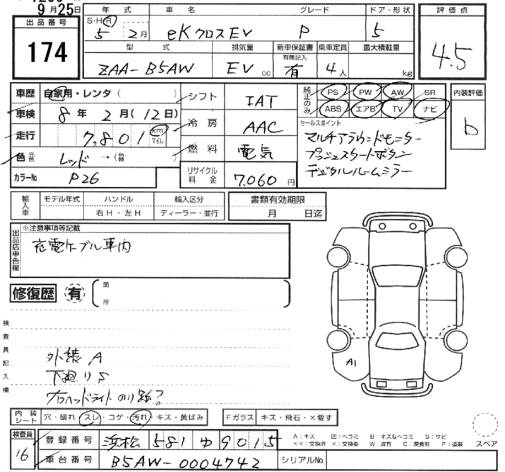 9月25日
出品番号
174
年式 車名 グレード ドア・形状 評価点
S・H・R 5年 2月 eKクロスEV P 5 4.5
型式 排気量 新車保証書 乗車定員 最大積載量
有無記入
ZAA-B5AW EV cc 有 4人 kg
車歴 自家用・レンタ( )
車検 8年 2月(12日)
走行 7,801 km マイル
色 レッド→(替)
カラーNo P26
シフト IAT
冷房 AAC
燃料 電気
リサイクル料金 7,060円
純正のみ PS PW AW SR
ABS エアB TV ナビ
内装評価
b
セールスポイント
マルチアラウンドモニター
プッシュスタートボタン
デジタルルームミラー
輸入車 モデル年式 ハンドル 輸入区分
右H・左H ディーラー・並行
書類有効期限
月 日迄
出品店申告欄
※注意事項等記載
充電ケーブル車内
修復歴 有 箇所
検査員記入欄
外装A
下廻りS
A1
内装シート 穴・破れ スレ・コゲ・汚れ・キズ・黄ばみ Fガラス キズ・飛石・×要す
検査員 16
登録番号 浜松 581 ゆ 9015
車台番号 B5AW-0004742
シリアルNo.
スペア